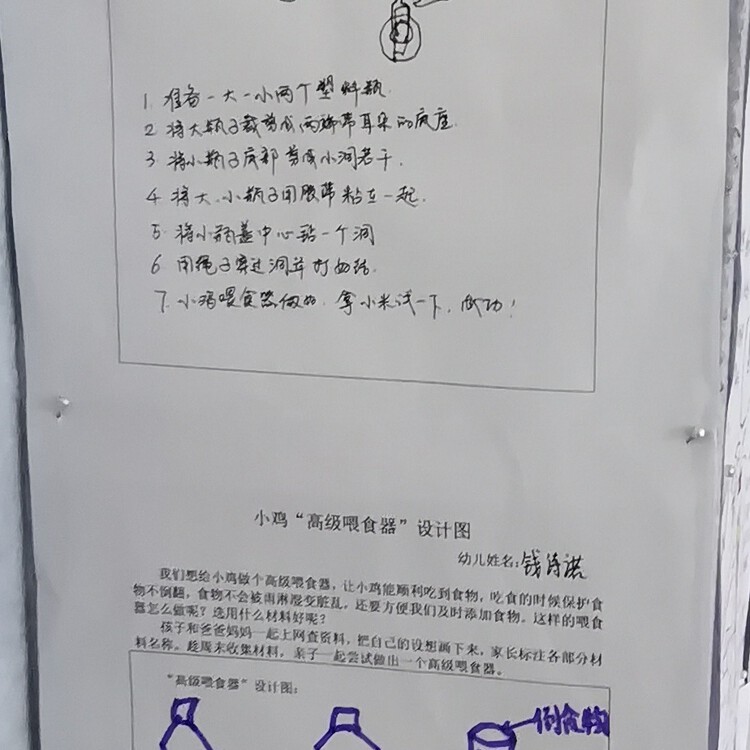 1. 准备一大一小两个塑料瓶
2 将大瓶子裁剪成两端带耳朵的底座
3 将小瓶子底部剪成小洞若干.
4 将大.小瓶子用胶带粘在一起.
5 将小瓶盖中心钻一个洞
6 用绳子穿过洞并打好结.
7. 小鸡喂食器做好. 拿小米试一下, 成功!
小鸡“高级喂食器”设计图
幼儿姓名:钱诗诺
我们想给小鸡做个高级喂食器,让小鸡能顺利吃到食物,吃食的时候保护食
物不倒翻,食物不会被雨淋湿变脏乱,还要方便我们及时添加食物。这样的喂食
器怎么做呢?选用什么材料好呢?
孩子和爸爸妈妈一起上网查资料,把自己的设想画下来,家长标注各部分材
料名称。趁周末收集材料,亲子一起尝试做出一个高级喂食器。
“高级喂食器”设计图:
倒食物